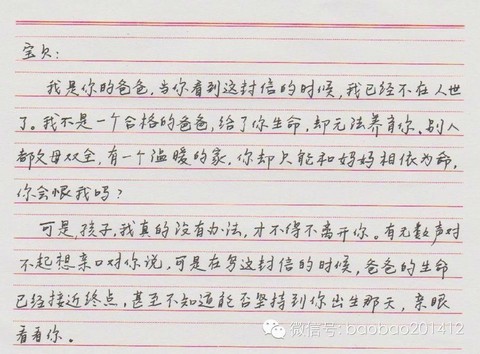 宝贝:
我是你的爸爸,当你看到这封信的时候,我已经不在人世
了。我不是一个合格的爸爸,给了你生命,却无法养育你。别人
都父母双全,有一个温暖的家,你却只能和妈妈相依为命,
你会恨我吗?
可是,孩子,我真的没有办法,才不得不离开你。有无数声对
不起想亲口对你说,可是在写这封信的时候,爸爸的生命
已经接近终点,甚至不知道能否坚持到你出生那天,亲眼
看看你。
微信号: baobao201412